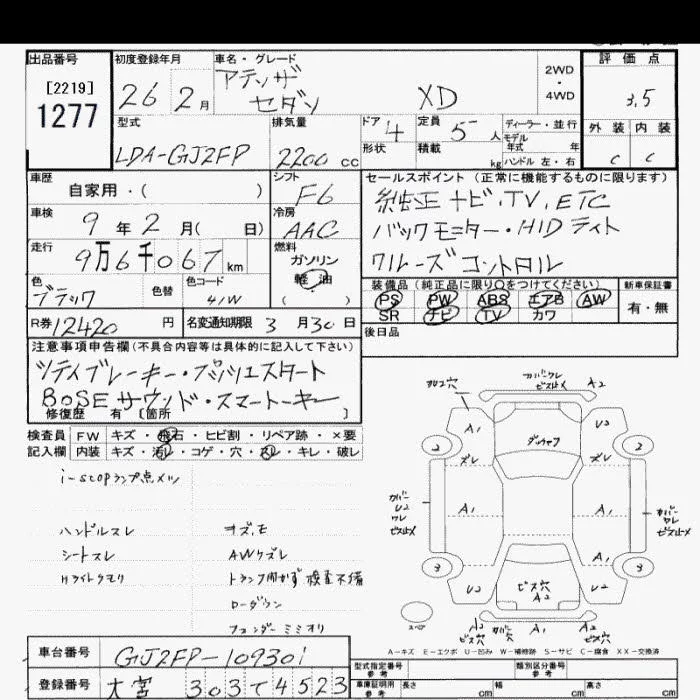 出品番号 初度登録年月 車名・グレード 評価点
[2219]
1277
26 2月
アテンザ
セダン XD
2WD
・
4WD
3.5
型式 排気量 ドア 定員 ディーラー・並行 外装 内装
LDA-GJ2FP 2200cc 4 5人 モデル年式 年
形状 積載 kg ハンドル 左・右 C C
車歴 シフト セールスポイント(正常に機能するものに限ります)
自家用・( ) F6 純正ナビ,TV,ETC
車検 冷房
9年2月( 日) AAC バックモニター・HIDライト
走行 燃料
9万6千067km ガソリン クルーズコントロール
軽油
( )
色 色替 色コード 装備品(純正品に限り○をつけてください) 新車保証書
ブラック 41W PS PW ABS エアB AW 有・無
SR ナビ TV カワ
R券12420円 名変通知期限 3月30日 後日品
注意事項申告欄(不具合内容等は具体的に記入して下さい)
シティブレーキー・プッシュスタート
BOSEサウンド・スマートキー
修復歴 有 〔箇所 〕
検査員 FW キズ・飛石・ヒビ割・リペア跡・×要
記入欄 内装 キズ・汚レ・コゲ・穴・スレ・キレ・破レ
i-stopランプ点メツ
ハンドルスレ
シートスレ
Hライトクモリ
キズ,モ
AWケズレ
トランク開かず 検査不備
ローダウン
フェンダーミミオリ
カバーワレ
ビスドメ A2
A1 U2
2 ズレ ズレ 2
A1 A1 A1
カバー
U2
ワレ
ビスドメ
カバー
ワレ
ビスドメ
A1
3 3
U2 ビス穴 U2
A2
スペア
A2 カバー A1 A2
ビス穴 穴 ビス穴
A-キズ E-エクボ U-凹み W-補修跡 S-サビ C-腐食 XX-交換済
車台番号 GJ2FP-109301 型式指定番号 参考 類別区分番号 参考
登録番号 大宮 303て4523 車庫証明用 参考 長さ cm 幅 cm 高さ cm